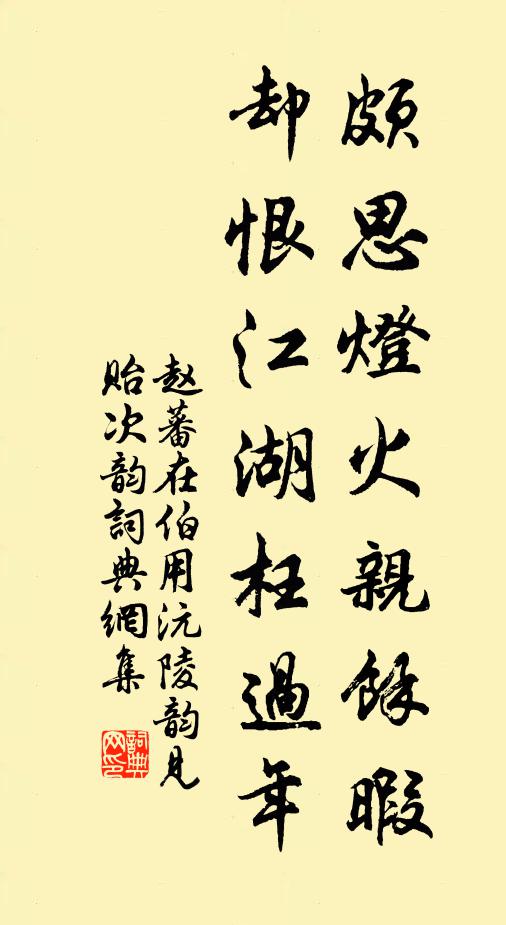 頗思燈火親餘暇
却恨江湖枉過年
赵蕃在伯用沅陵韵見
貽次韵詞典網集
詞典網印